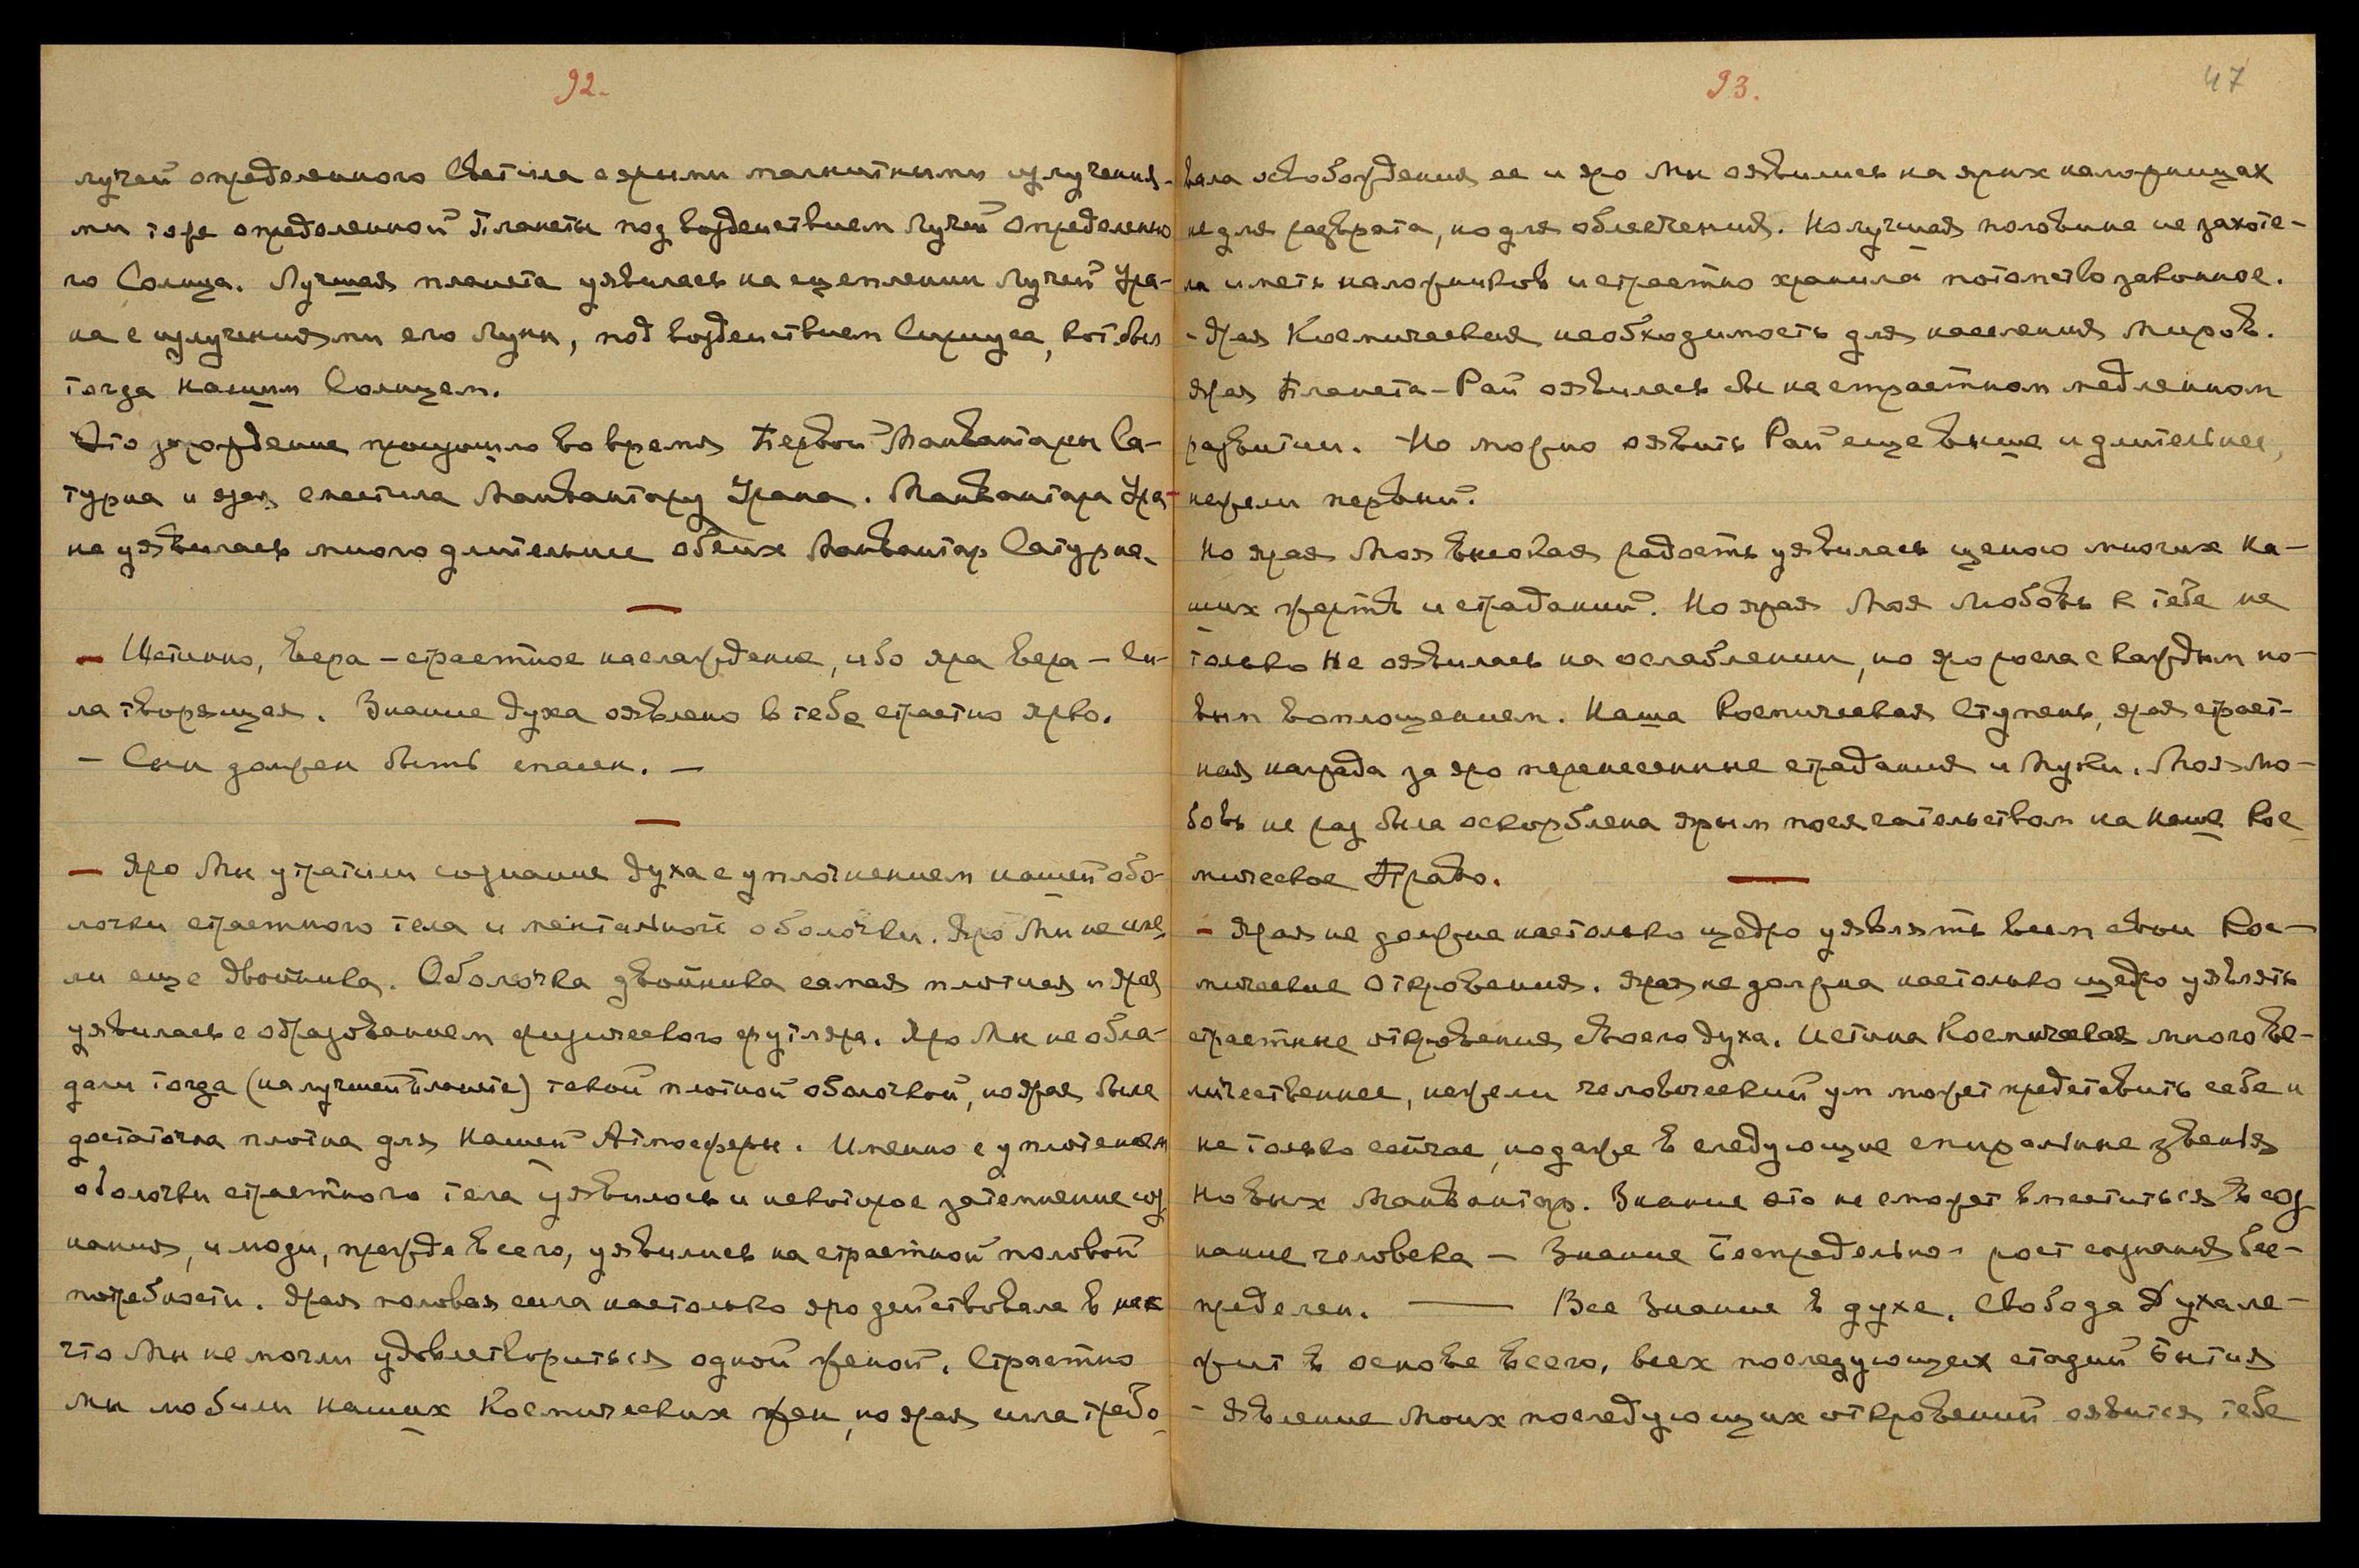 92.
лучей определенного Светила с ярыми магнитными излучения-
ми тоже определенной Планеты под воздействием Лучей определенно
го Солнца. Лучшая планета уявилась на сцеплении Лучей Ура-
на с излучениями его Луны, под воздействием Сириуса, кот. был
тогда нашим Солнцем.
Это зарождение произошло во время Первой Манвантары Са-
турна и ярая сместила Манвантару Урана. Манвантара Ура-
на уявилась много длительнее обеих Манвантар Сатурна.
— Истинно, вера – страстное наслаждение, ибо яра вера – си-
ла творящая. Знание духа оявлено в тебе страстно ярко.
– Сын должен быть спасен. –
— Яро Мы утратили сознание духа с уплотнением нашей обо-
лочки страстного тела и ментальной оболочки. Яро Мы не име
ли еще двойника. Оболочка двойника самая плотная и ярая
уявилась с образованием физического футляра. Яро Мы не обла-
дали тогда (на лучшей Планете) такой плотной оболочкой, но ярая была
достаточна плотна для Нашей Атмосферы. Именно с уплотнением
оболочки страстного тела уявилось и некоторое затемнение соз
нания, и люди, прежде всего, уявились на страстной половой
потребности. Ярая половая сила настолько яро действовала в нас
что Мы не могли удовлетвориться одной женой. Страстно
Мы любили наших Космических жен, но ярая сила требо-
93.
47
вала освобождения ее и яро Мы оявились на ярых наложницах
не для разврата, но для облегчения. Но лучшая половина не захоте-
ла иметь наложников и страстно хранила потомство законное.
- Ярая Космическая необходимость для населения Миров.
Ярая Планета-Рай оявилась бы на страстном медленном
развитии. Но можно оявить Рай еще выше и длительнее,
нежели первый.
Но ярая Моя высокая радость уявилась ценою многих На-
ших жертв и страданий. Но ярая Моя Любовь к тебе не
только не оявилась на ослаблении, но яро росла с каждым но-
вым воплощением. Наша Космическая Ступень, ярая страст-
ная награда за яро перенесенные страдания и Муки. Моя Лю-
бовь не раз была оскорблена ярым посягательством на Наше Кос
мическое Право.
– Ярая не должна настолько щедро уявлять всем свои Кос-
мические Откровения. Ярая не должна настолько щедро уявлять
страстные откровения своего духа. Истина Космическая много ве-
личественнее, нежели человеческий ум может представить себе и
не только сейчас, но даже в следующие спиральные звенья
Новых Манвантар. Знание это не сможет вместиться в соз
нание человека – Знание Беспредельно – рост сознания бес-
пределен. — Все Знание в духе. Свобода Духа ле-
жит в основе всего, всех последующих стадий Бытия
- Явление Моих последующих откровений оявится тебе